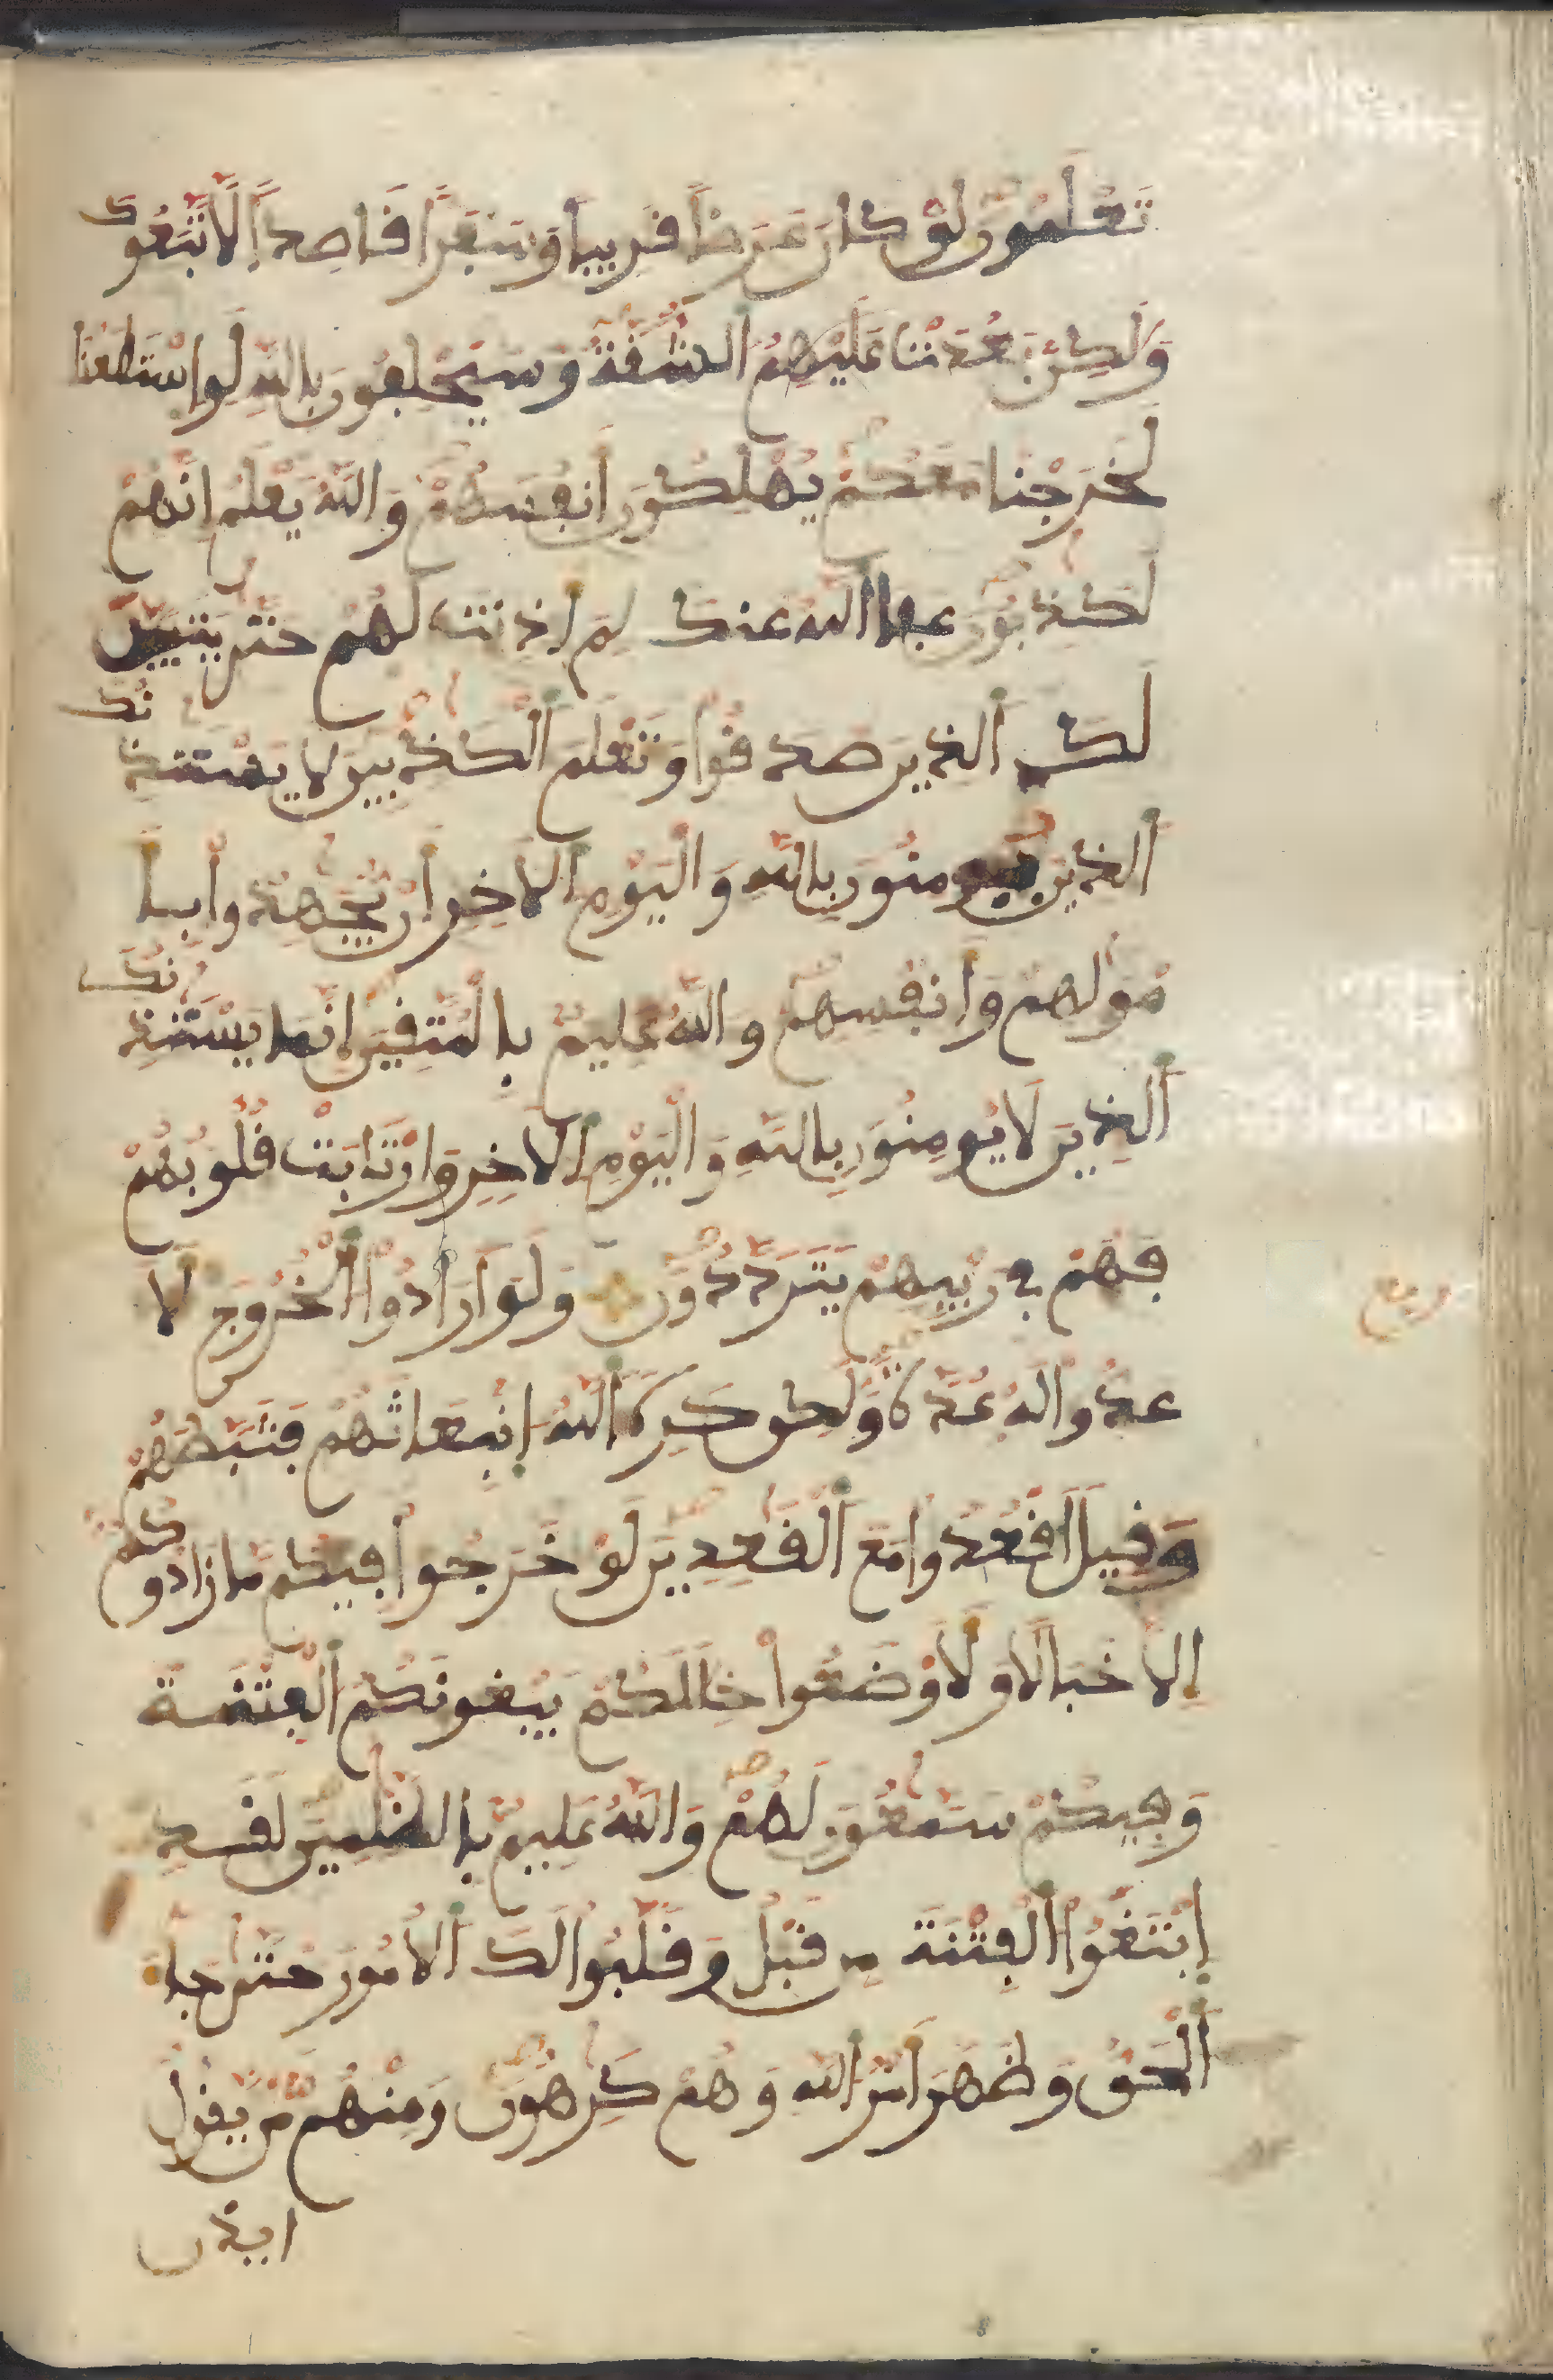 تَعْلَمُونَ لَوْ كَانَ عَرَضاً قَرِيباً وَسَفَراً قَاصِداً لَّاتَّبَعُوكَ
وَلَٰكِنۢ بَعُدَتْ عَلَيْهِمُ الشُّقَّةُ وَسَيَحْلِفُونَ بِاللَّهِ لَوِ اسْتَطَعْنَا
لَخَرَجْنَا مَعَكُمْ يُهْلِكُونَ أَنفُسَهُمْ وَاللَّهُ يَعْلَمُ إِنَّهُمْ
لَكَٰذِبُونَ عَفَا اللَّهُ عَنكَ لِمَ أَذِنتَ لَهُمْ حَتَّىٰ يَتَبَيَّنَ
لَكَ الَّذِينَ صَدَقُوا وَتَعْلَمَ الْكَٰذِبِينَ لَا يَسْتَٔذِنُكَ
الَّذِينَ يُومِنُونَ بِاللَّهِ وَالْيَوْمِ الْأَخِرِ أَنْ يُّجَٰهِدُوا بِأَ
مْوَٰلِهِمْ وَأَنفُسِهِمْ وَاللَّهُ عَلِيمٌۢ بِالْمُتَّقِينَ إِنَّمَا يَسْتَٔذِنُكَ
الَّذِينَ لَا يُومِنُونَ بِاللَّهِ وَالْيَوْمِ الْأَخِرِ وَارْتَابَتْ قُلُوبُهُمْ
فَهُمْ فِي رَيْبِهِمْ يَتَرَدَّدُونَ وَلَوْ أَرَادُوا الْخُرُوجَ لَأَ
عَدُّوا لَهُ عُدَّةً وَلَٰكِن كَرِهَ اللَّهُ انۢبِعَاثَهُمْ فَثَبَّطَهُمْ
وَقِيلَ اقْعُدُوا مَعَ الْقَٰعِدِينَ لَوْ خَرَجُوا فِيكُم مَّا زَادُوكُمْ
إِلَّا خَبَالاً وَلَأَوْضَعُوا خِلَٰلَكُمْ يَبْغُونَكُمُ الْفِتْنَةَ
وَفِيكُمْ سَمَّٰعُونَ لَهُمْ وَاللَّهُ عَلِيمٌۢ بِالظَّٰلِمِينَ لَقَدِ
ابْتَغَوُا الْفِتْنَةَ مِن قَبْلُ وَقَلَّبُوا لَكَ الْأُمُورَ حَتَّىٰ جَاءَ
الْحَقُّ وَظَهَرَ أَمْرُ اللَّهِ وَهُمْ كَٰرِهُونَ وَمِنْهُم مَّنْ يَّقُولُ
ايذن
ربع